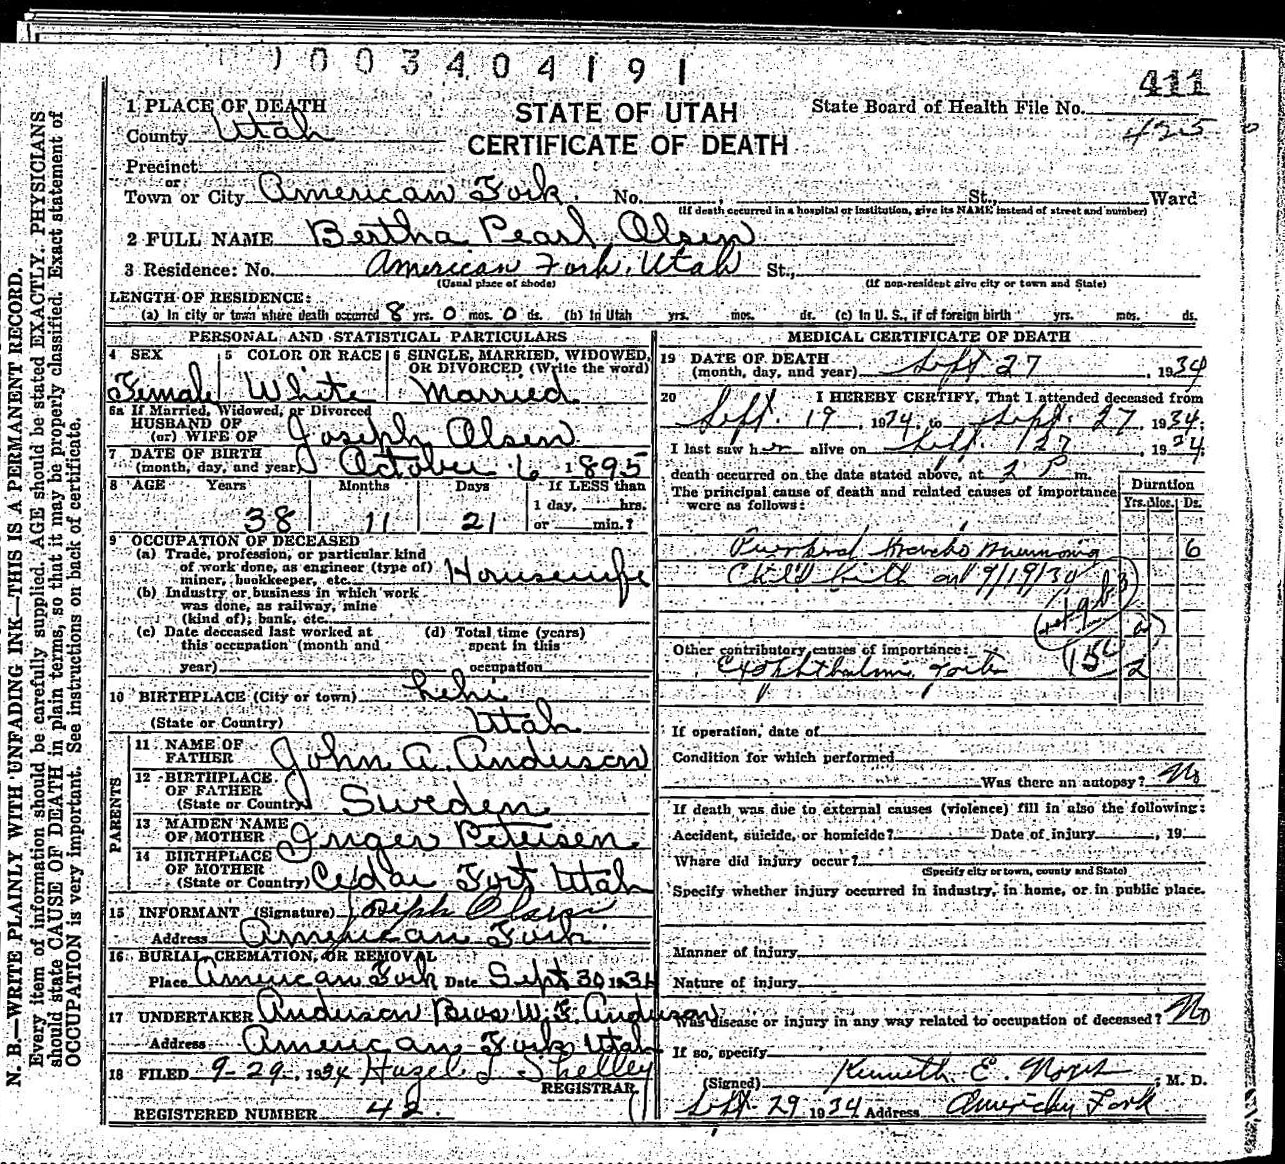 1003404191
411
1 PLACE OF DEATH
STATE OF UTAH
State Board of Health File No.
County Utah
CERTIFICATE OF DEATH
425
Precinct
or
Town or City American Fork. No. St., Ward
(If death occurred in a hospital or institution, give its NAME instead of street and number)
2 FULL NAME Bertha Pearl Olsen
3 Residence: No. American Fork, Utah St.,
(Usual place of abode) (If non-resident give city or town and State)
LENGTH OF RESIDENCE:
(a) In city or town where death occurred 8 yrs. 0 mos. 0 ds. (b) In Utah yrs. mos. ds. (c) In U. S., if of foreign birth yrs. mos. ds.
PERSONAL AND STATISTICAL PARTICULARS
4 SEX
Female
5 COLOR OR RACE
White
6 SINGLE, MARRIED, WIDOWED, OR DIVORCED (Write the word)
Married
6a If Married, Widowed, or Divorced
HUSBAND OF
(or) WIFE OF Joseph Olsen
7 DATE OF BIRTH
(month, day, and year) October 6 1895
8 AGE Years Months Days If LESS than
1 day, hrs.
38 11 21 or min.?
9 OCCUPATION OF DECEASED
(a) Trade, profession, or particular kind
of work done, as engineer (type of)
miner, bookkeeper, etc. Housewife
(b) Industry or business in which work
was done, as railway, mine
(kind of); bank, etc.
(c) Date deceased last worked at
this occupation (month and
year)
(d) Total time (years)
spent in this
occupation
10 BIRTHPLACE (City or town) Lehi
(State or Country) Utah
PARENTS
11 NAME OF
FATHER John A. Anderson
12 BIRTHPLACE
OF FATHER
(State or Country) Sweden
13 MAIDEN NAME
OF MOTHER Inger Petersen
14 BIRTHPLACE
OF MOTHER
(State or Country) Cedar Fort Utah
15 INFORMANT (Signature) Joseph Olsen
Address American Fork
16 BURIAL, CREMATION, OR REMOVAL
Place American Fork Date Sept 30 1934
17 UNDERTAKER Anderson Bros W. F. Anderson
Address American Fork Utah
18 FILED 9-29-, 1934 Hazel J Shelley
REGISTRAR
REGISTERED NUMBER 42.
MEDICAL CERTIFICATE OF DEATH
19 DATE OF DEATH
(month, day, and year) Sept 27, 1934
20 I HEREBY CERTIFY, That I attended deceased from
Sept. 19, 1934, to Sept. 27, 1934;
I last saw her alive on Sept. 27, 1934;
death occurred on the date stated above, at 2 P m.
The principal cause of death and related causes of importance
were as follows:
Duration
Yrs. Mos. Ds.
Pneumonia 6
Child birth on 9/19/34
Other contributory causes of importance:
Exophthalmic Goiter 2
If operation, date of
Condition for which performed
Was there an autopsy? No
If death was due to external causes (violence) fill in also the following:
Accident, suicide, or homicide? Date of injury, 19
Where did injury occur?
(Specify city or town, county and State)
Specify whether injury occurred in industry, in home, or in public place.
Manner of injury
Nature of injury
Was disease or injury in any way related to occupation of deceased? No
If so, specify
(Signed) Kenneth E. , M. D.
Sept. 29 1934 Address American Fork
N. B.—WRITE PLAINLY WITH UNFADING INK—THIS IS A PERMANENT RECORD.
Every item of information should be carefully supplied. AGE should be stated EXACTLY. PHYSICIANS
should state CAUSE OF DEATH in plain terms, so that it may be properly classified. Exact statement of
OCCUPATION is very important. See instructions on back of certificate.